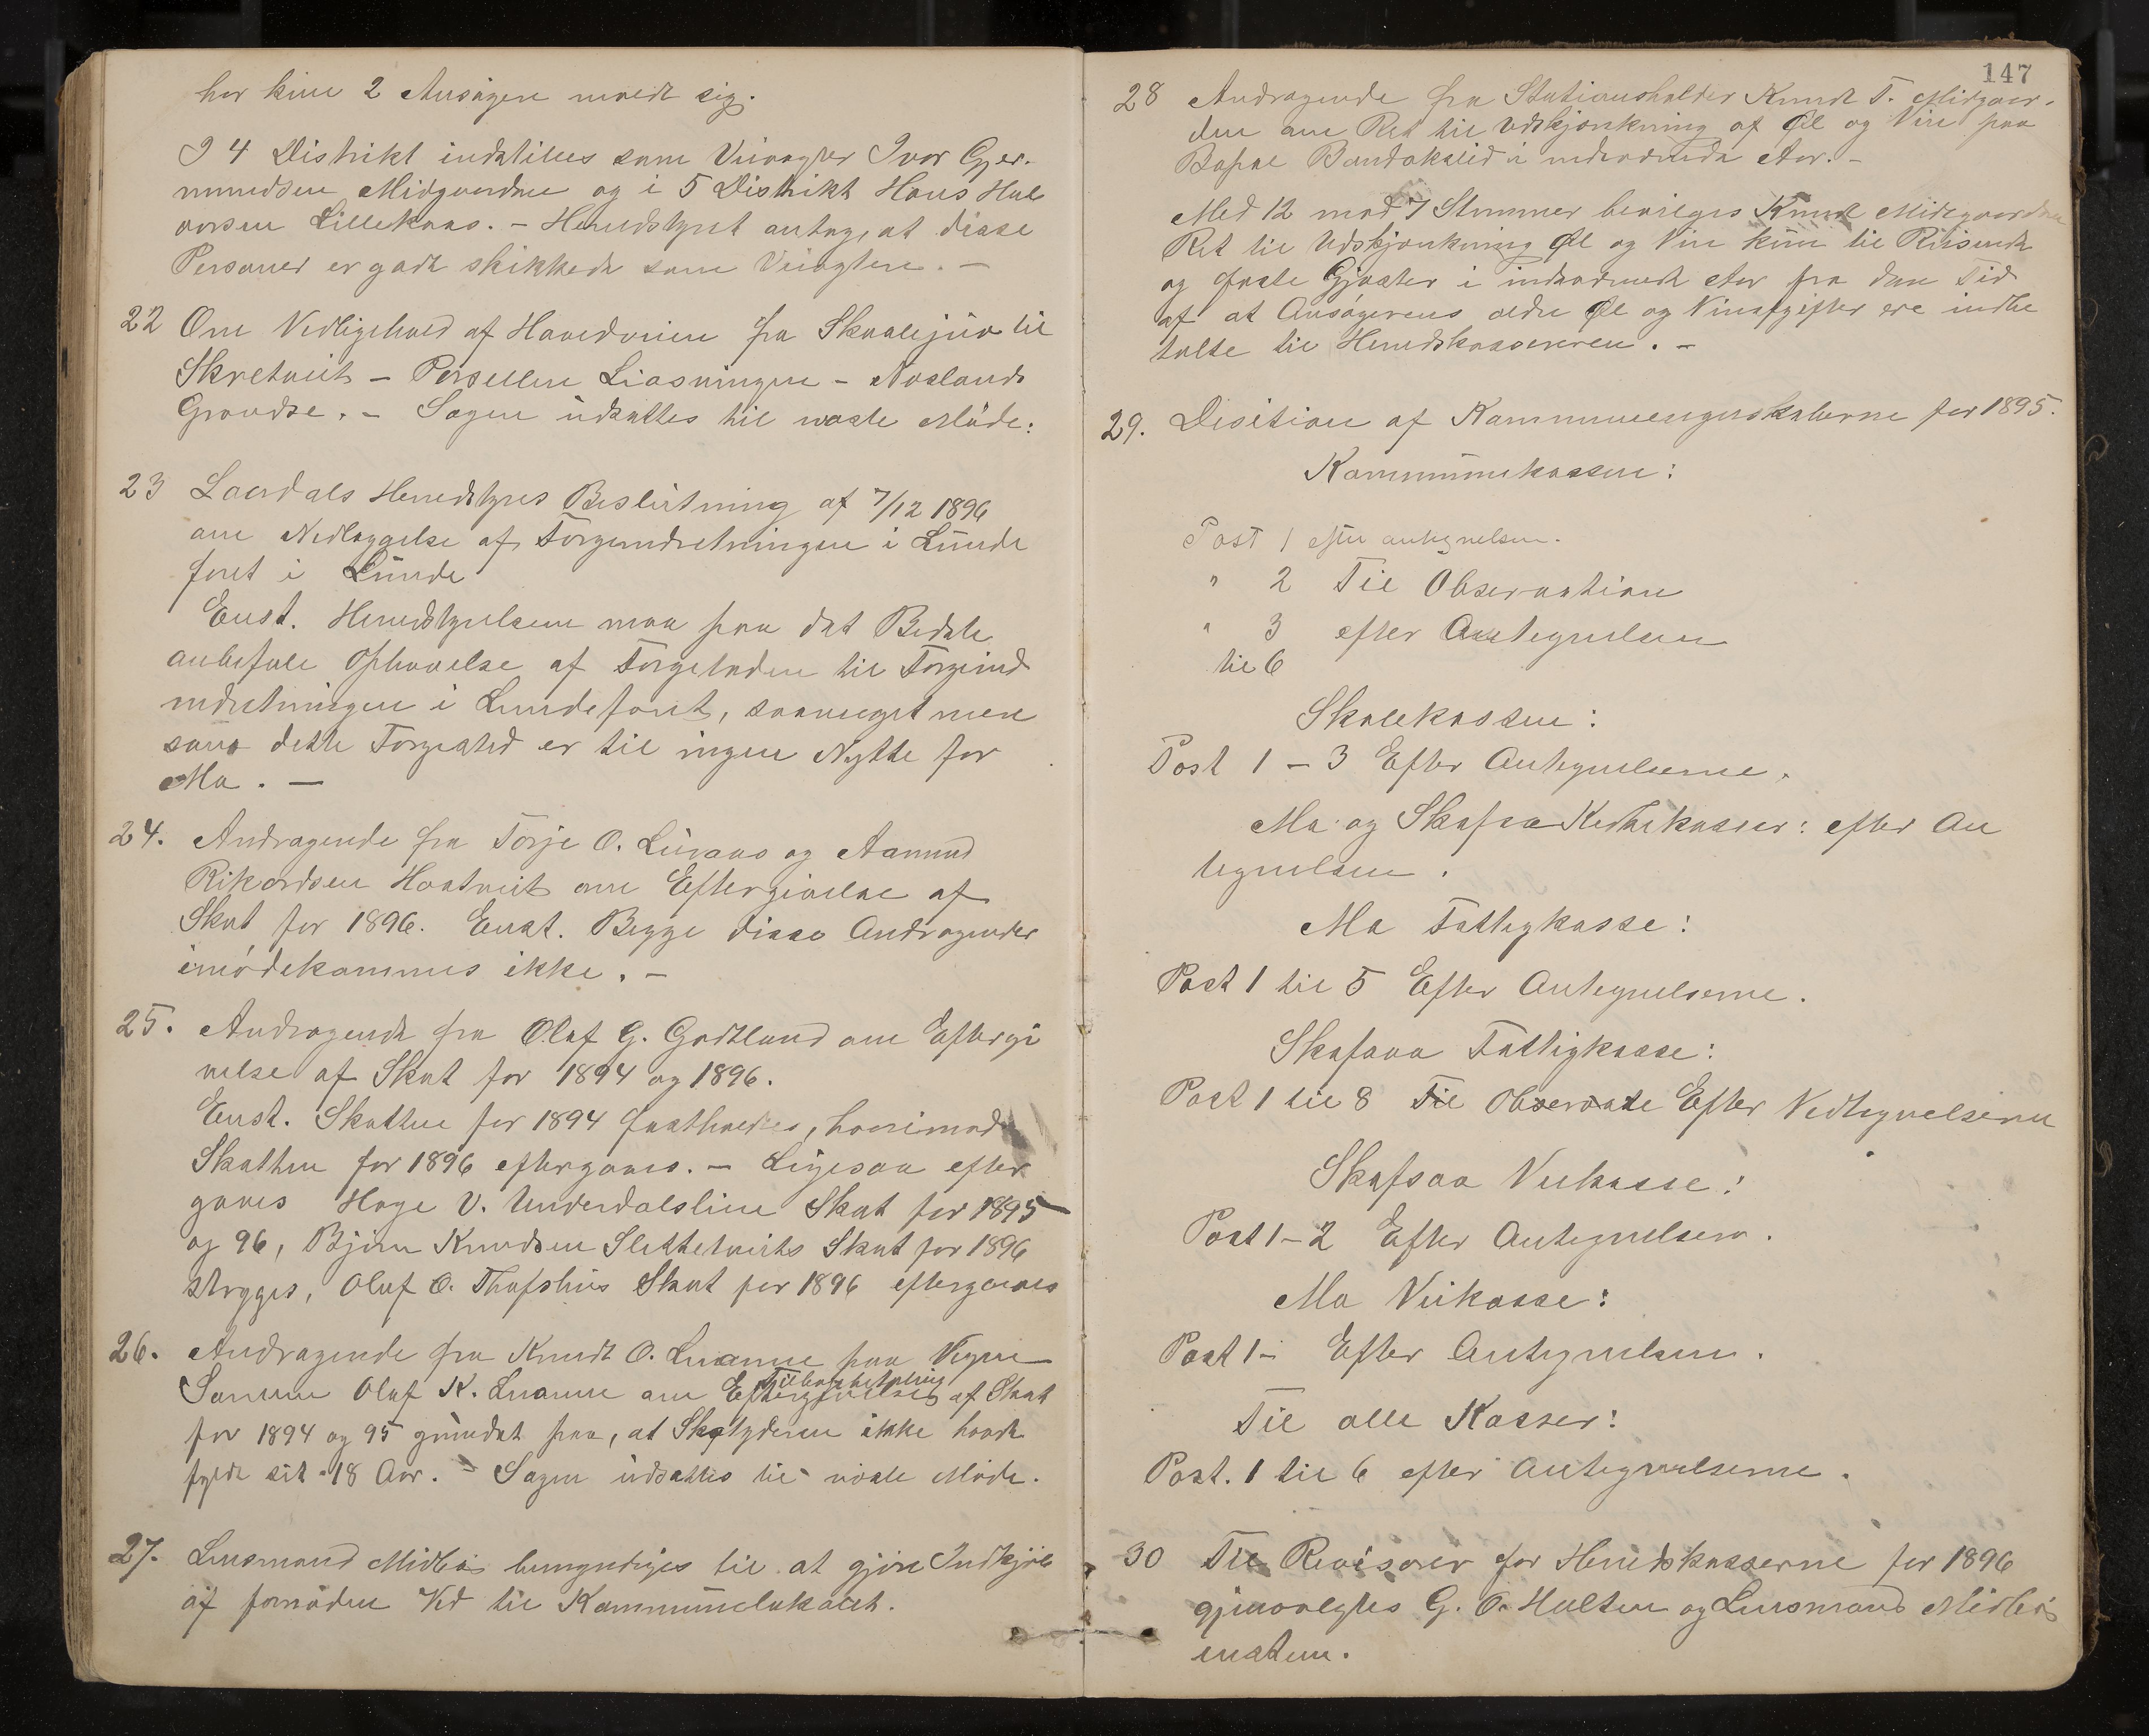 har kun 2 Ansøgere meldt sig.
I 4 Distrikt indstilles som Veivogter Ivar Gjer-
mundsen Midgaarden og i 5 Distrikt Hans Hal
vorsen Lillekaas. – Herredstyret antog, at disse
Personer er godt skikkede som Veivogtere. –
22 Om Vedligehold af Hovedveien fra Skaalejuv til
Skretveit – Persellen Liosningen – Aaslands
Grændse. – Sagen udsattes til næste Møde:
23 Laurdals Herredstyres Beslutning af 7/12 1896
om Nedlæggelse af Færgeindretningen i Lunde
foret i Lunde
Enst. Herredstyrelsen maa paa det Bedste
anbefale Ophævelse af Færgeladen til Færgeind
indretningen i Lundeforet, saameget mere
som dette Færgested er til ingen Nytte for
Mo. –
24. Andragende fra Torje O. Livaas og Aamund
Rikardsen Hoatveit om Eftergivelse af
Skat for 1896. Enst. Begge disse Andragender
imødekommes ikke. –
25. Andragende fra Olaf G. Godtland om Eftergi
velse af Skat for 1894 og 1896.
Enst. Skatten for 1894 fastholdes, hvorimod
Skatten for 1896 eftergaves. – Ligesaa efter
gaves Hæge V. Underdalslien Skat for 1895
og 96, Bjørn Knudsen Slettetveits Skat for 1896
stryges, Oluf O. Skat for 1896 eftergaves
26. Andragende fra Knudt O. Kvanne paa Vegne
Tilbagebetaling
Sønnen Oluf K. om Eftergivelse af Skat
for 1894 og 95 grundet paa, at Skatyderen ikke havde
fyldt sit 18 Aar. – Sagen udsattes til næste Møde.
27. Lensmand Midbø bemyndiges til at gjøre Indkjøb
af fornøden Ved til Kommunelokalet.
147
28 Andragende fra Stationsholder Knudt T. Midgaar-
den om Ret til Udskjænkning af Øl og Vin paa
Bopæl Bandakslid i indeværende Aar. –
Med 12 mod 7 Stemmer bevilges Knudt Midtgaarden
Ret til Udskjænkning Øl og Vin kun til Reisende
og faste Gjæster i indeværende Aar fra den Tid
af at Ansøgerens ældre Øl og Vinafgifter ere indbe
talte til Herredskassereren. –
29. Desition af Kommuneregnskaberne for 1895.
Kommunekassen:
Post 1 efter antegnelsen.
" 2 Til Observation
" 3 efter Antegnelsen
til 6
Skolekassen:
Post 1 – 3 Efter Antegnelserne.
Mo og Skafsaa Kirkekasser: efter An
tegnelsen.
Mo Fattigkasse:
Post 1 til 5 Efter Antegnelserne.
Skafsaa Fattigkasse:
Post 1 til 8 Til Observate Efter Vedtegnelserne
Skafsaa Veikasse:
Post 1–2 Efter Antegnelsen.
Mo Veikasse:
Post 1– Efter Antegnelsen.
Til alle Kasser:
Post. 1 til 6 efter Antegnelserne.
30 Til Revisorer for Herredskasserne for 1896
gjenvalgtes G. O. Holten og Lensmand Midbø
enstem.